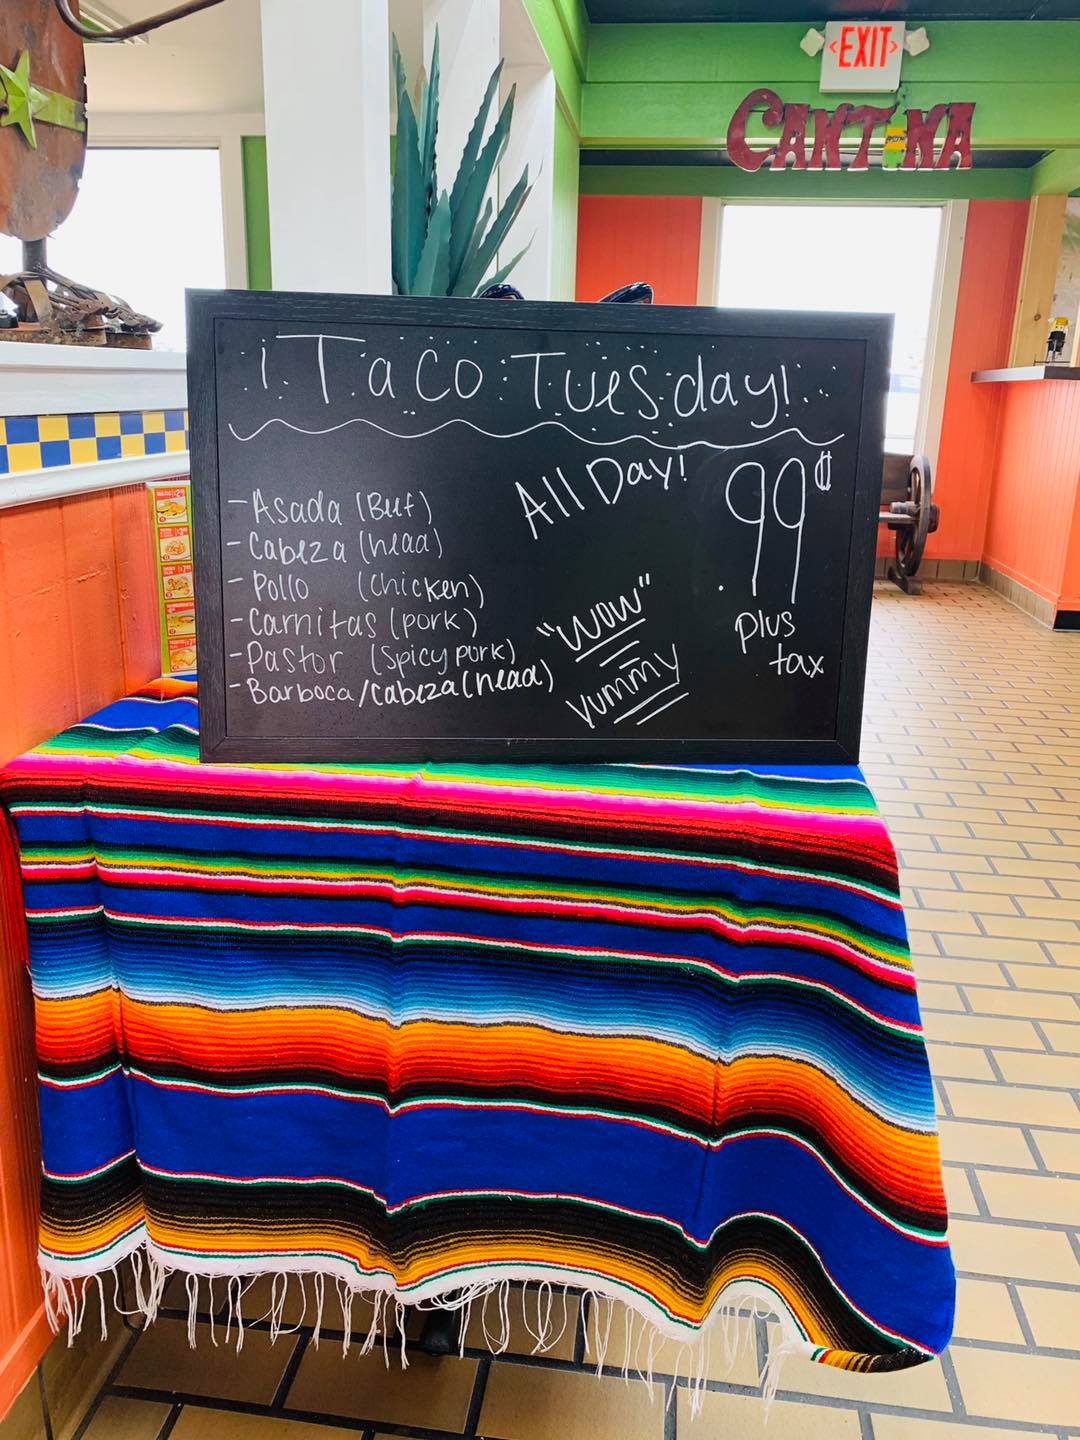 EXIT
CANTINA
¡Taco Tuesday!
All Day!
.99¢
plus
tax
- Asada (Beef)
- Cabeza (head)
- Pollo (chicken)
- Carnitas (pork)
- Pastor (Spicy pork)
- Barboca/cabeza (head)
"WOW"
Yummy